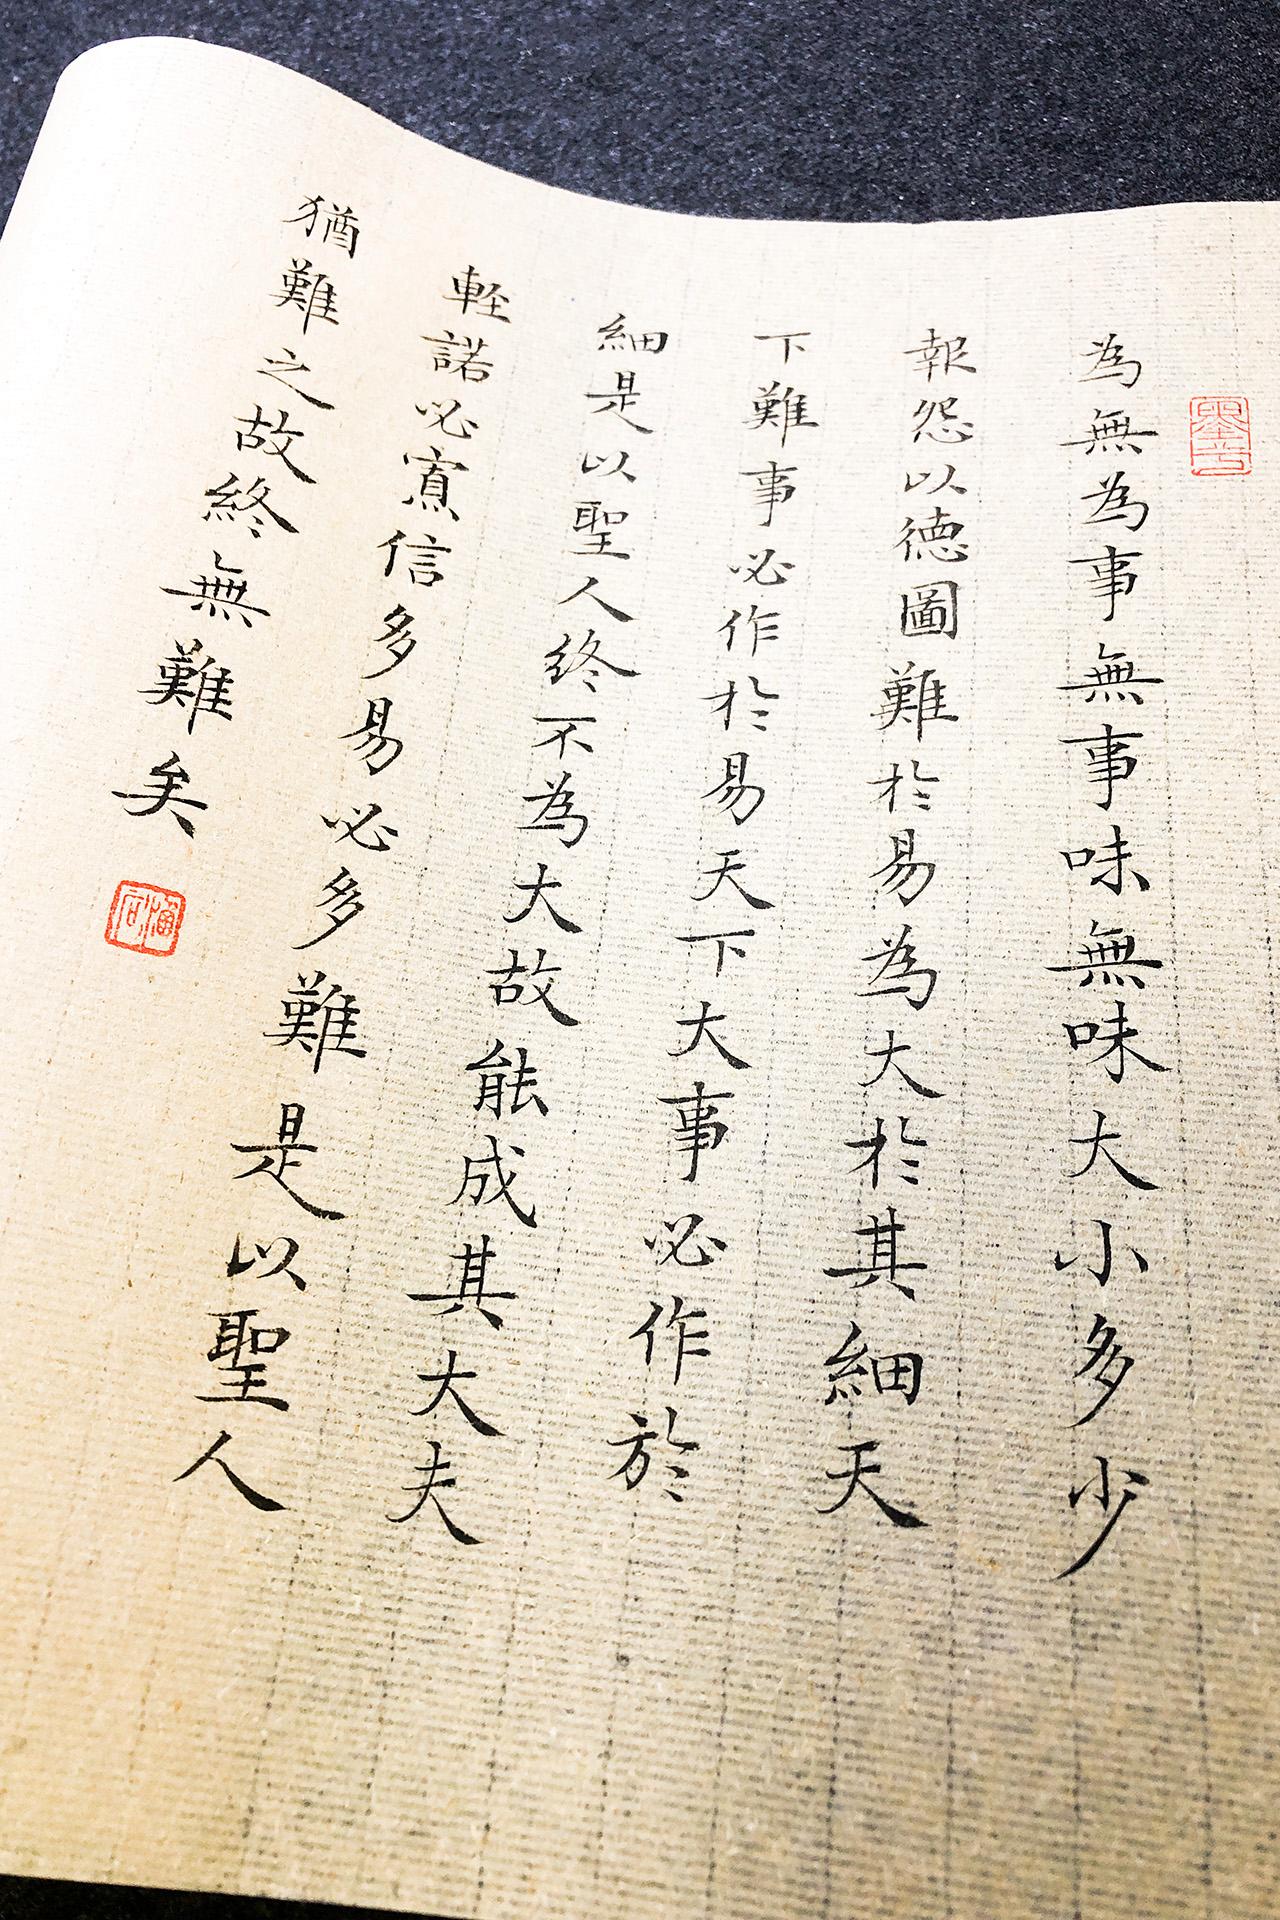 為無為事無事味無味大小多少
報怨以德圖難於易為大於其細天
下難事必作於易天下大事必作於
細是以聖人終不為大故能成其大夫
輕諾必寡信多易必多難是以聖人
猶難之故終無難矣